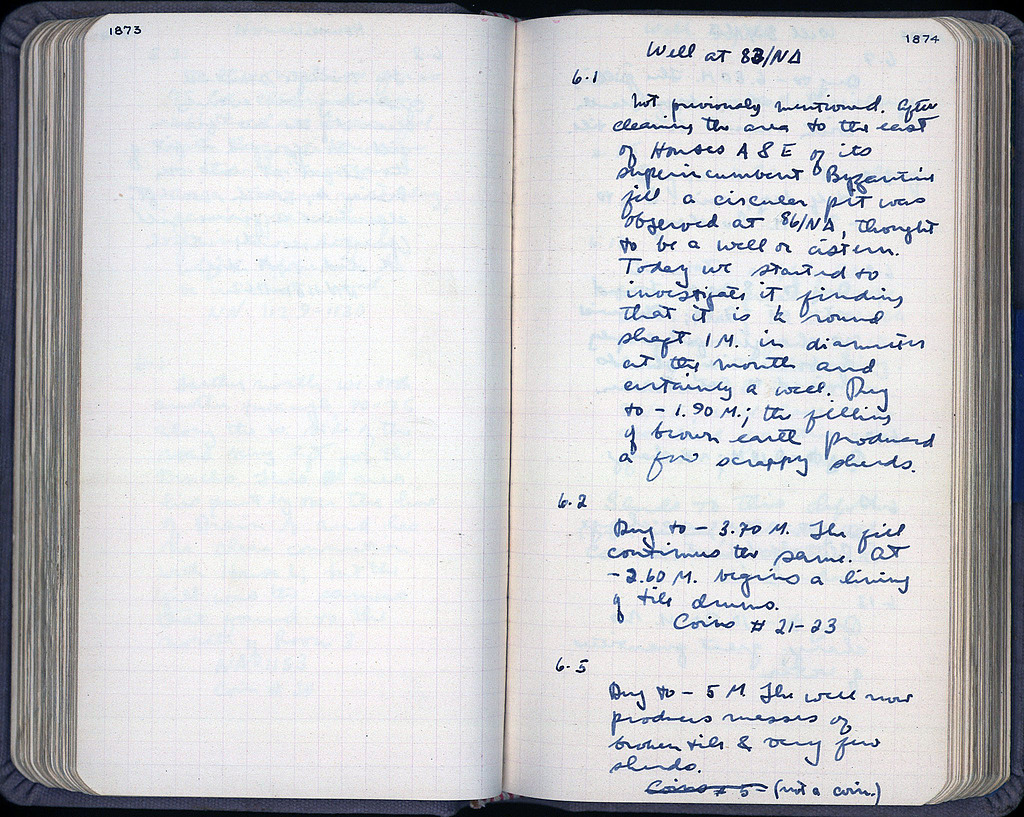 1873
1874
Well at 83/NA
6.1
Not previously mentioned. After
clearing the area to the east
of Houses A & E of its
superincumbent Byzantine
fill a circular pit was
observed at 86/NA, thought
to be a well or cistern.
Today we started to
investigate it finding
that it is a round
shaft 1 M. in diameter
at the mouth and
certainly a well. Dug
to - 1.90 M.; the filling
of brown earth produced
a few scrappy sherds.
6.2
Dug to - 3.70 M. The fill
continues the same. At
-2.60 M. begins a lining
of tile drums.
Coins # 21-23
6.5
Dug to - 5 M The well now
produces masses of
broken tile & very few
sherds.
Coins # 5 (not a coin.)